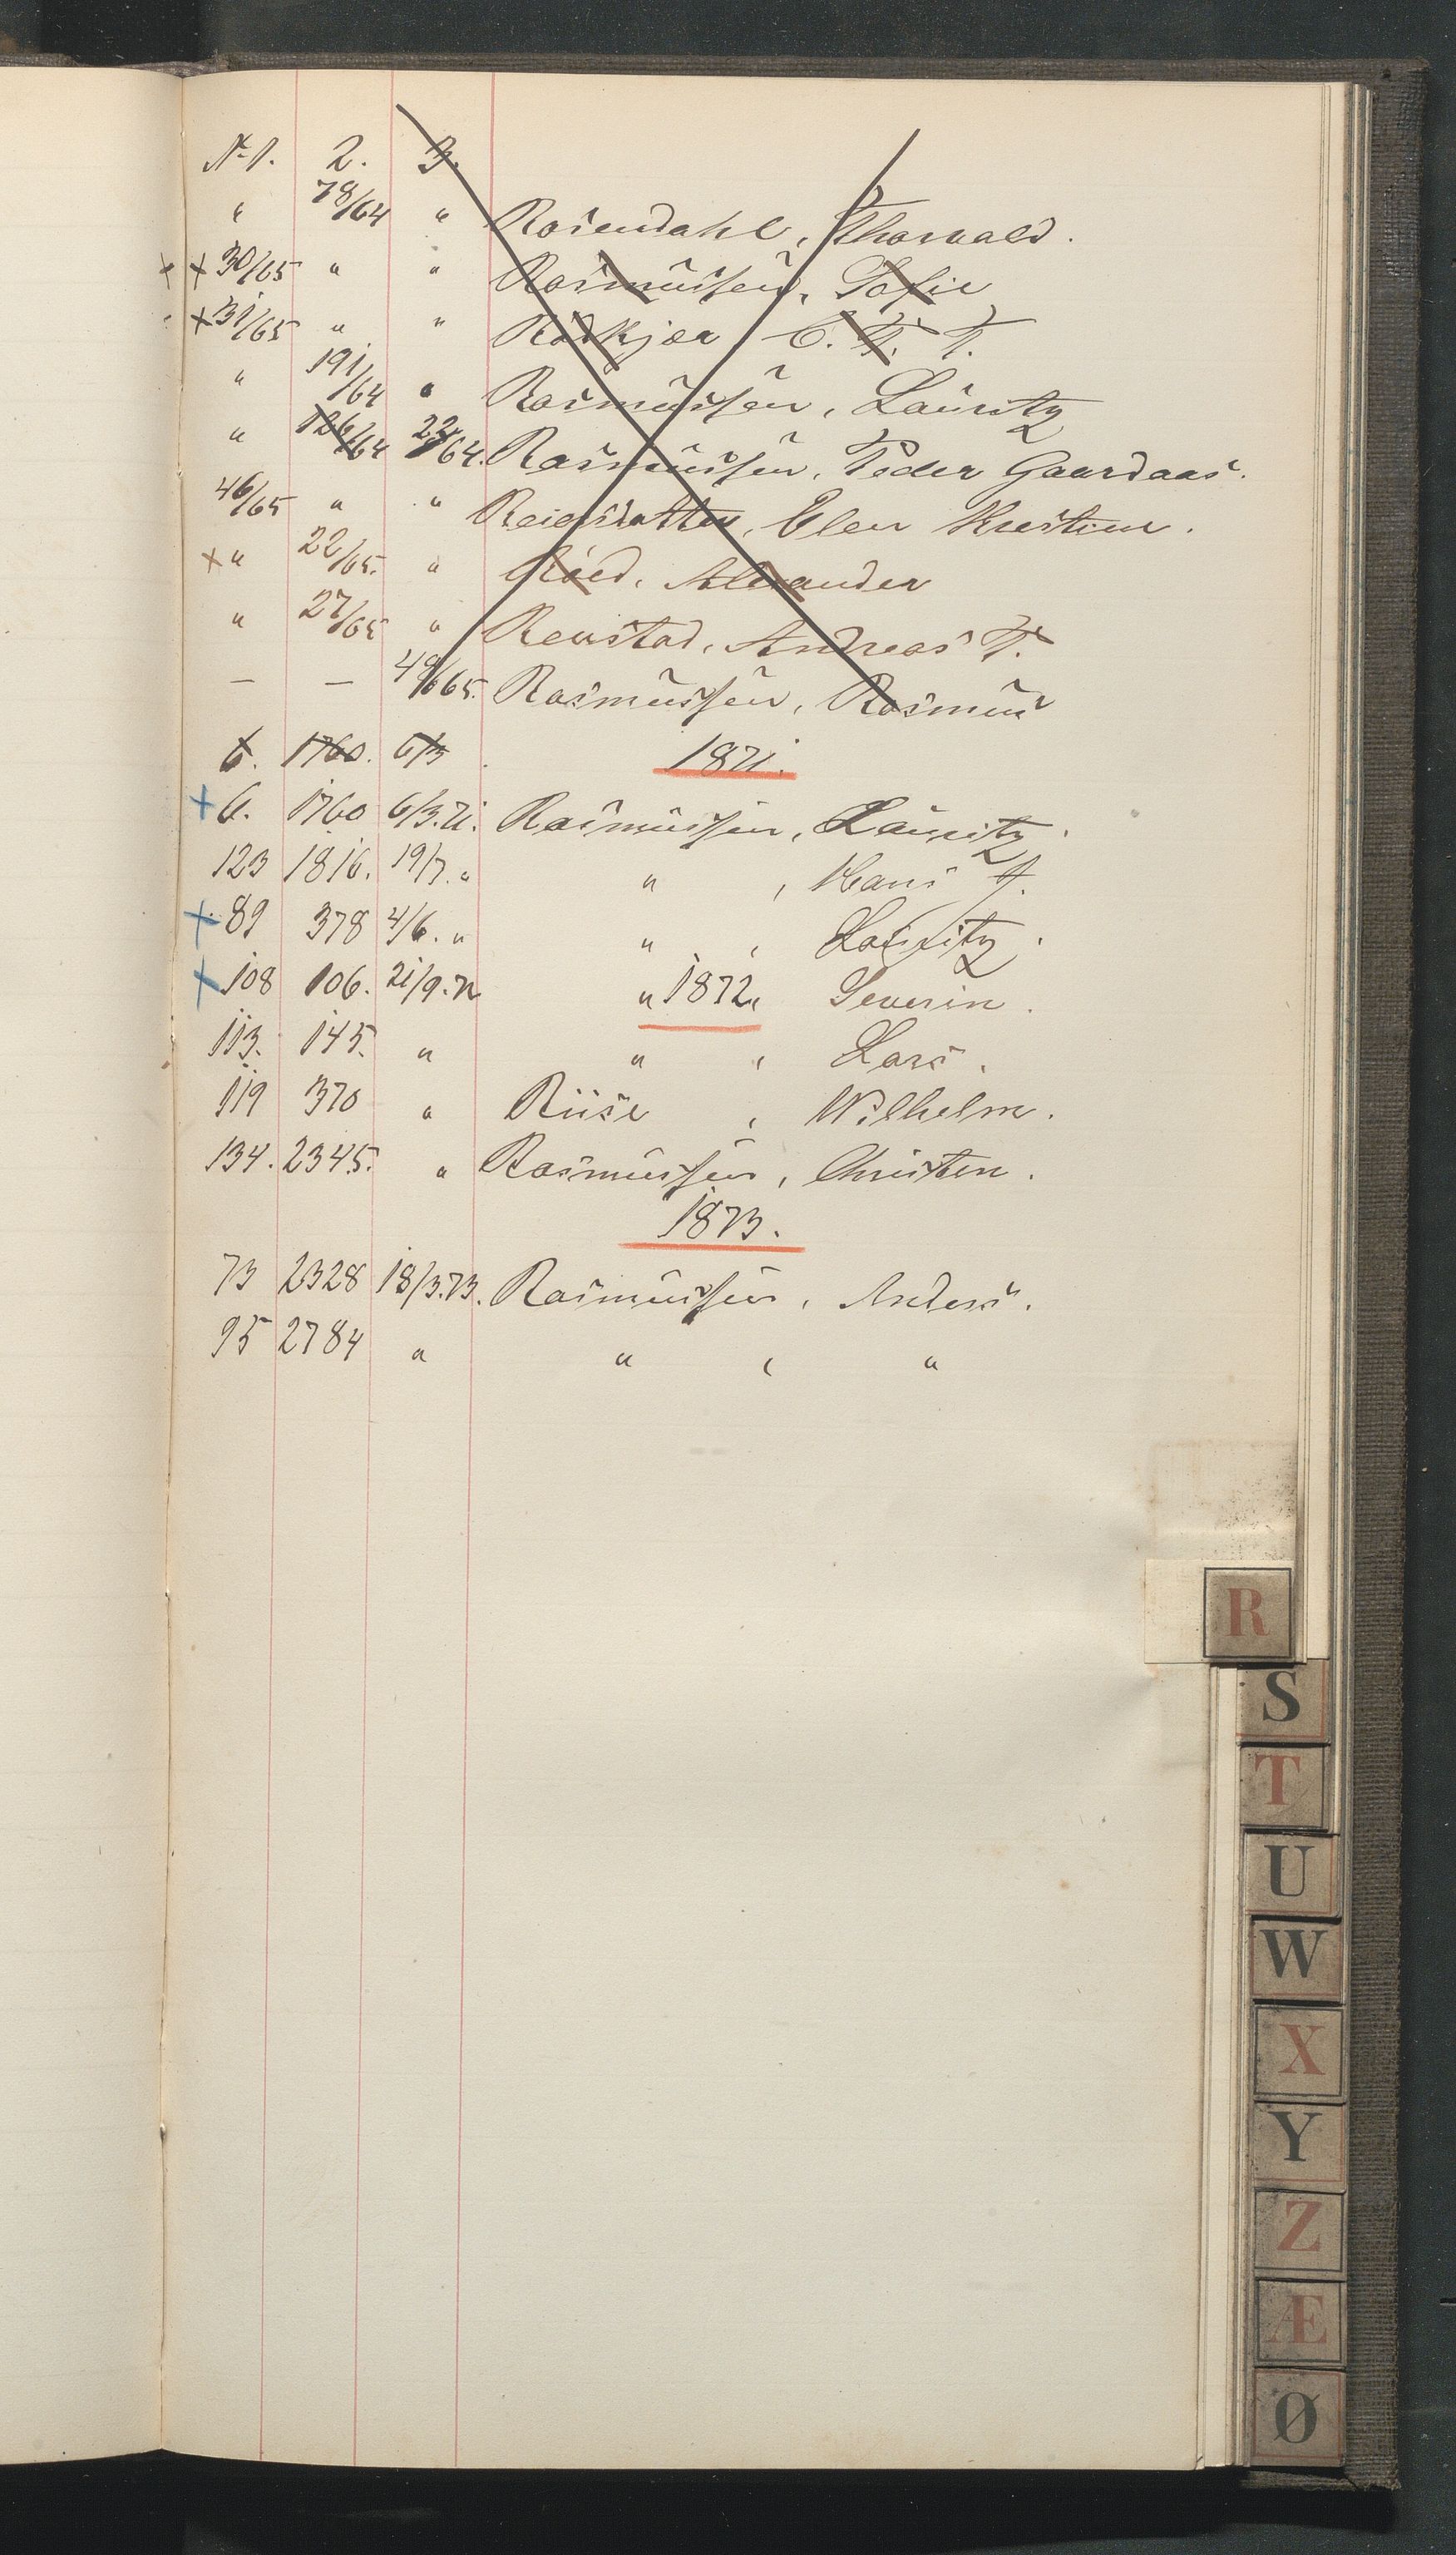 No 1. 2. 3.
" 78/64 " Rosendahl, Thorvald.
+ + 30/65 " " Rasmussen, Sofie
+ 31/65 " " Rödkjær, C. F. T.
" 191/64 " Rasmussen, Lauritz
" 126/64 22/64. Rasmussen, Peder Gaardaas.
46/65 " " Reiersdatter, Elen Kristine.
+ " 22/65. " Röed, Alexander
" 27/65 " Renstad, Andreas T.
— — 48/65. Rasmussen, Rasmus
6. 1760. 6/3 1871.
+ 6. 1760 6/3.71. Rasmussen, Lauritz.
123 1816. 19/7. " " , Hans J.
+ 89 378 4/6. " " , Lauritz.
+ 108 106. 21/9.72 " 1872 " Severin.
113. 145. " " , Lars.
119 370 " Riise , Wilhelm.
134. 2345. " Rasmussen, Christen.
1873.
73 2328 18/3.73. Rasmussen, Anders.
95 2784 " " , "
R
S
T
U
W
X
Y
Z
Æ
Ø